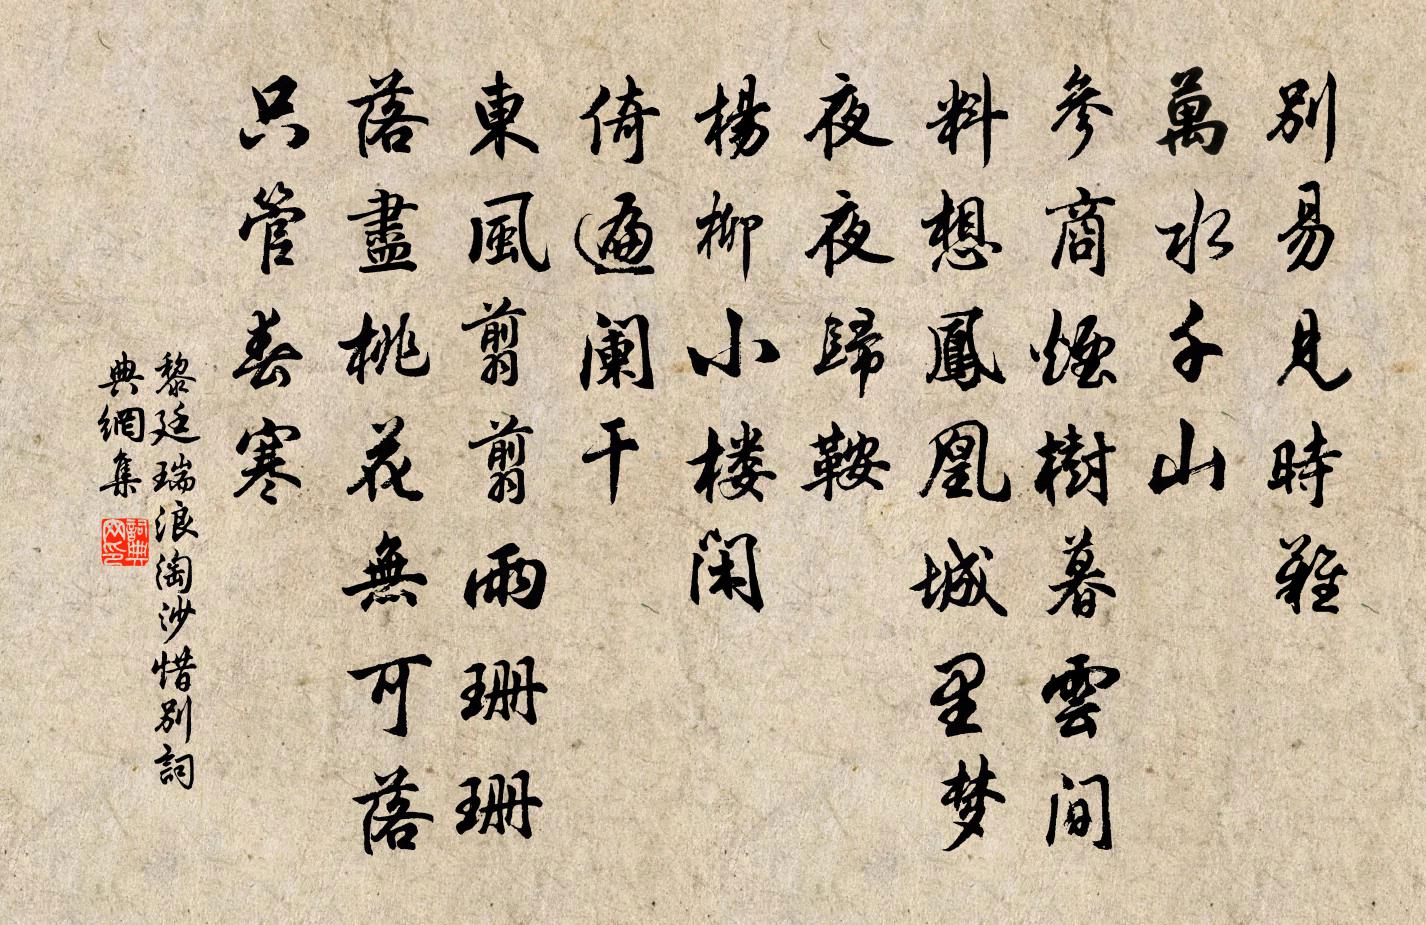 別易見時難
萬水千山
參商煙樹暮雲間
料想鳳凰城里梦
夜夜歸鞍
楊柳小楼閑
倚遍闌干
東風翦翦雨珊珊
落盡桃花無可落
只管春寒
黎廷瑞浪淘沙惜別詞
典網集
詞典
网印